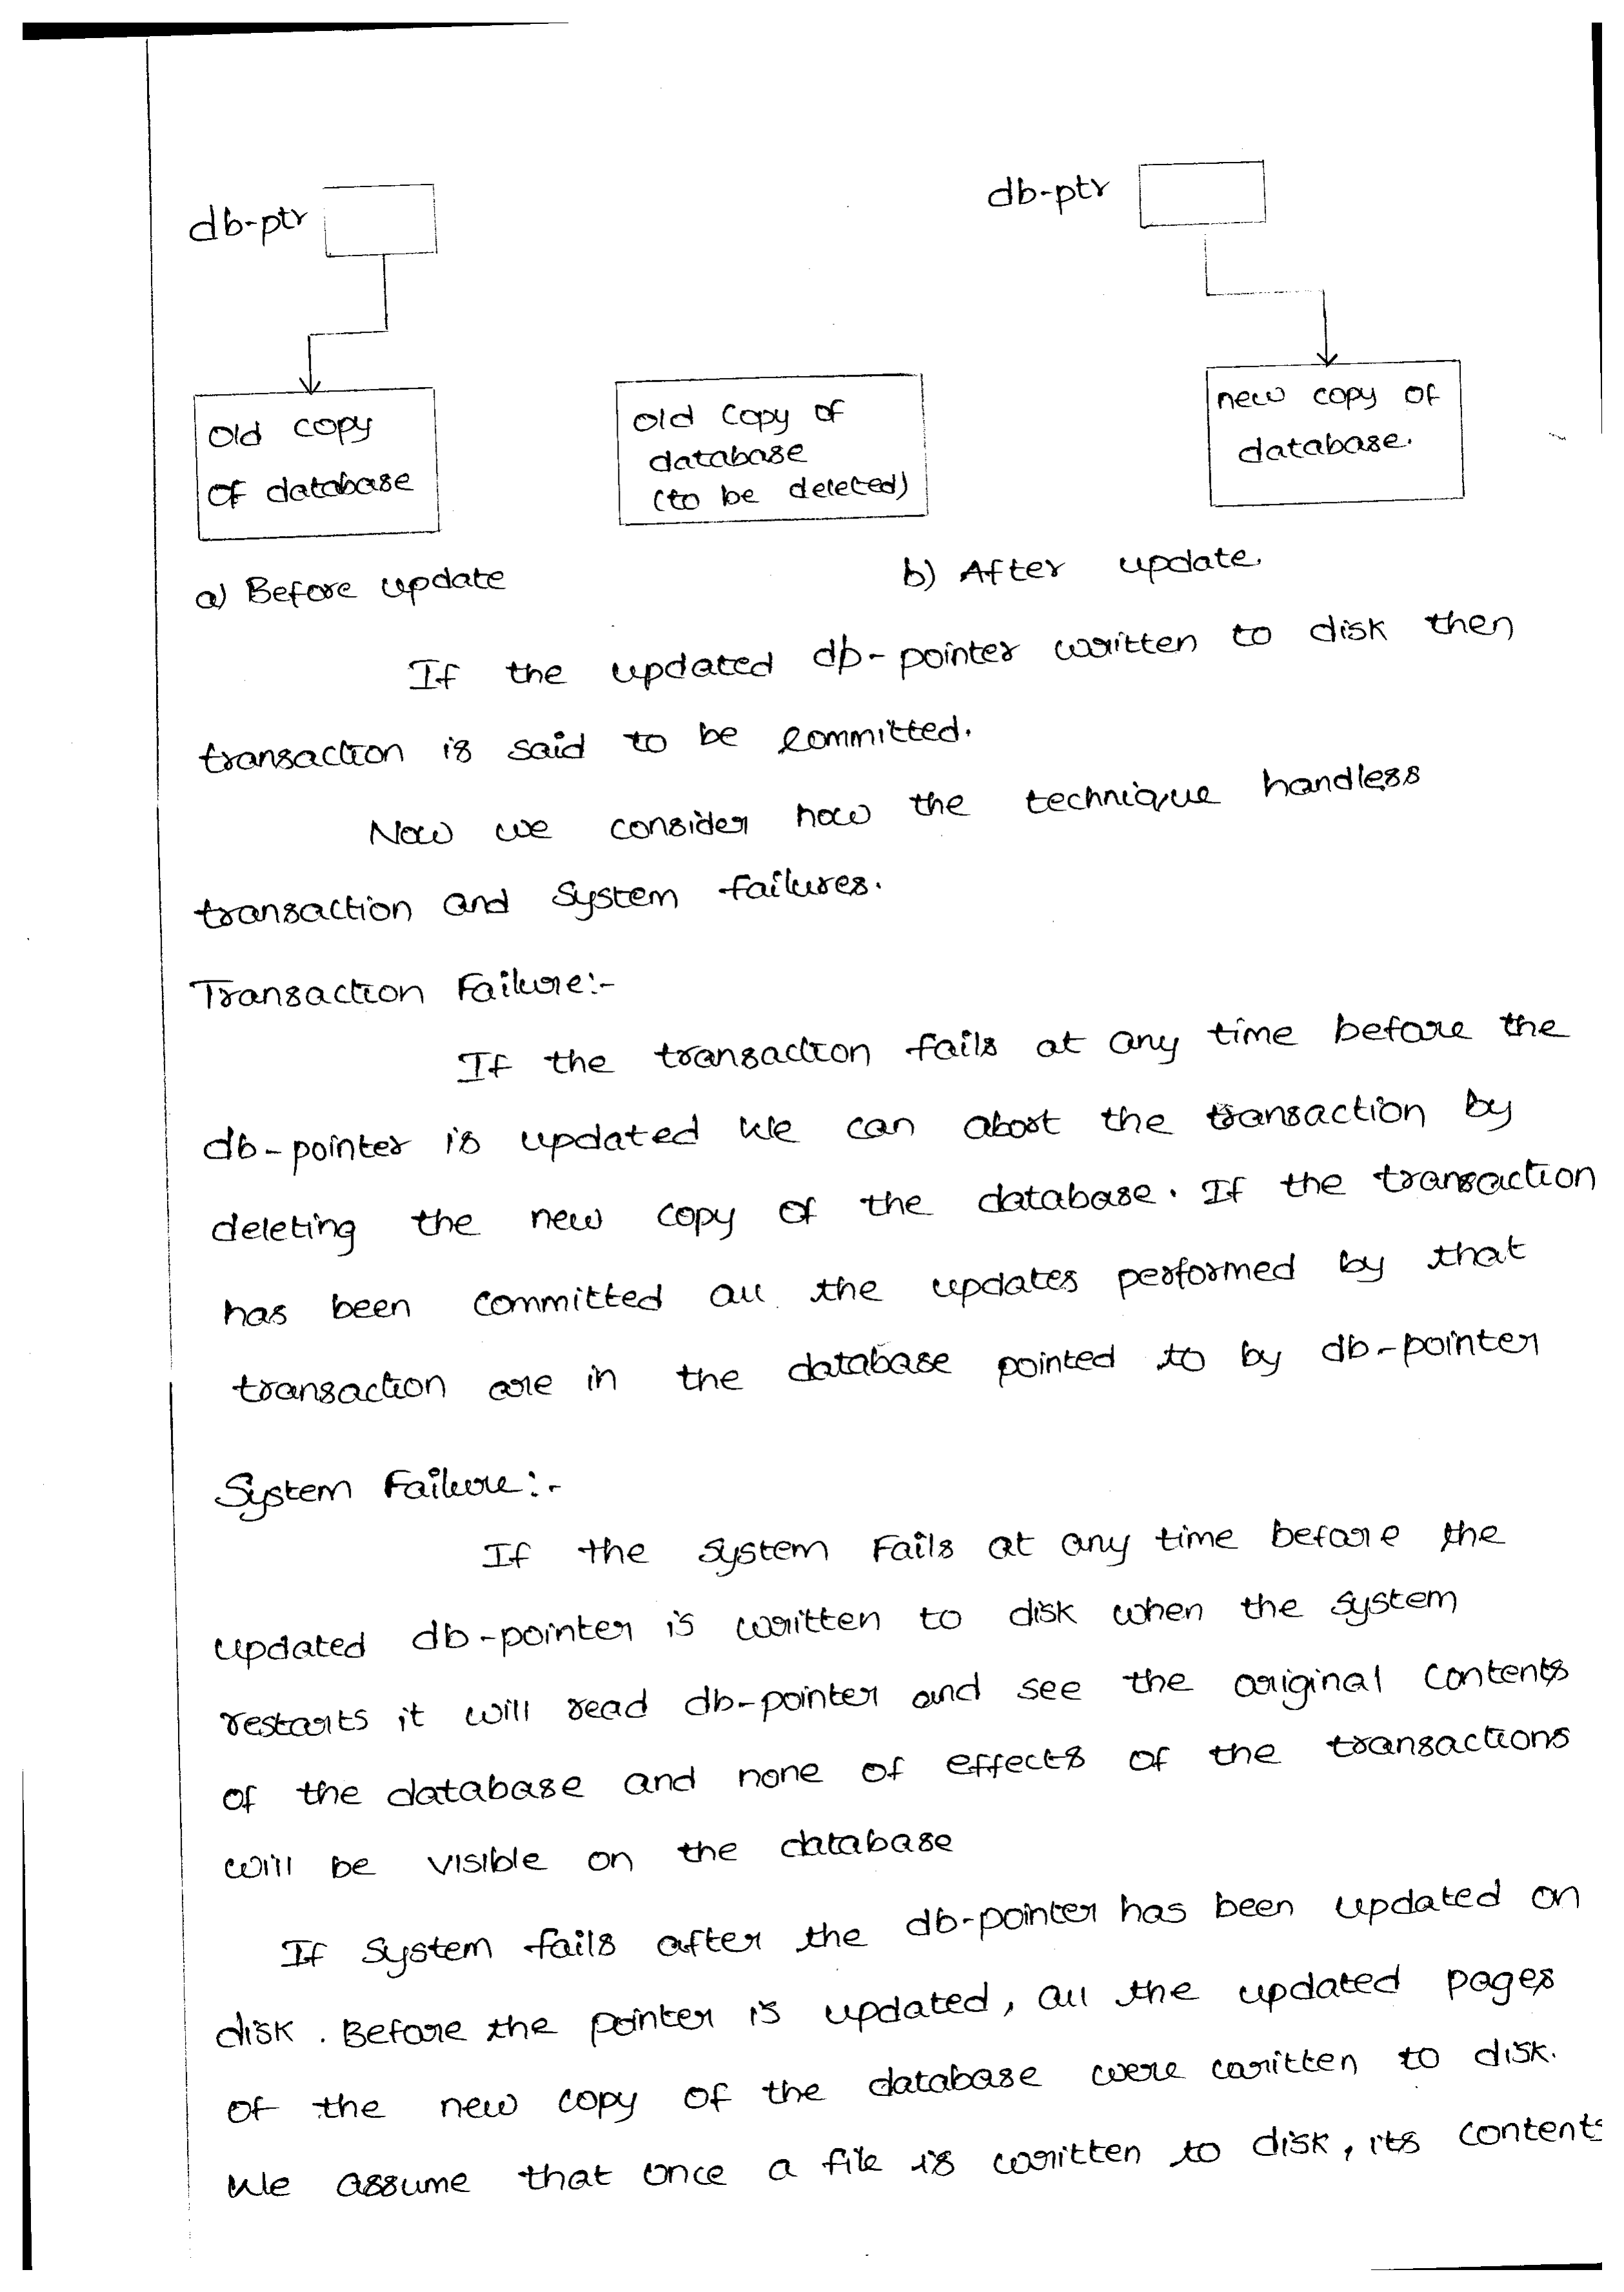 db-ptr
db-ptr
old copy
of database
old copy of
database
(to be deleted)
new copy of
database.
a) Before update
b) After update.
If the updated db-pointer written to disk then
transaction is said to be committed.
Now we consider how the technique handless
transaction and system failures.
Transaction Failure:-
If the transaction fails at any time before the
db-pointer is updated we can abort the transaction by
deleting the new copy of the database. If the transaction
has been committed all the updates performed by that
transaction are in the database pointed to by db-pointer
System Failure:-
If the system Fails at any time before the
updated db-pointer is written to disk when the system
restarts it will read db-pointer and see the original contents
of the database and none of effects of the transactions
will be visible on the database
If system fails after the db-pointer has been updated on
disk. Before the pointer is updated, all the updated pages
of the new copy of the database were written to disk.
We assume that once a file is written to disk, its contents